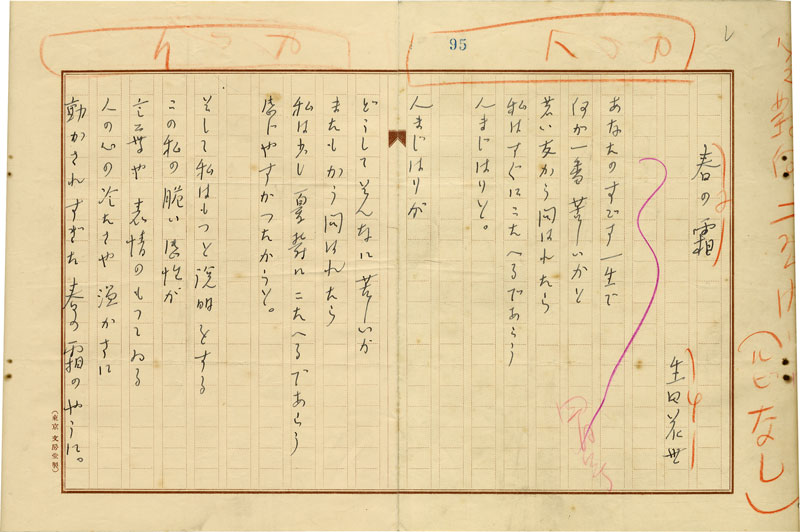 95
春の霜
生田花世
あなたのすごす一生で
何が一番苦しいかと
若い友から問はれたら
私はすぐにこたへるであらう
人まじはりと。
人まじはりが
どうしてそんなに苦しいか
またもかう問はれたら
私は少し憂鬱にこたへるであらう
感じやすかつたからと。
そして私はもつと説明をする
この私の脆い感性が
言葉や表情のもつてゐる
人の心の冷たさや温かさに
動かされすぎた春の霜のやうに。
(ルビなし)
(東京 文房堂製)